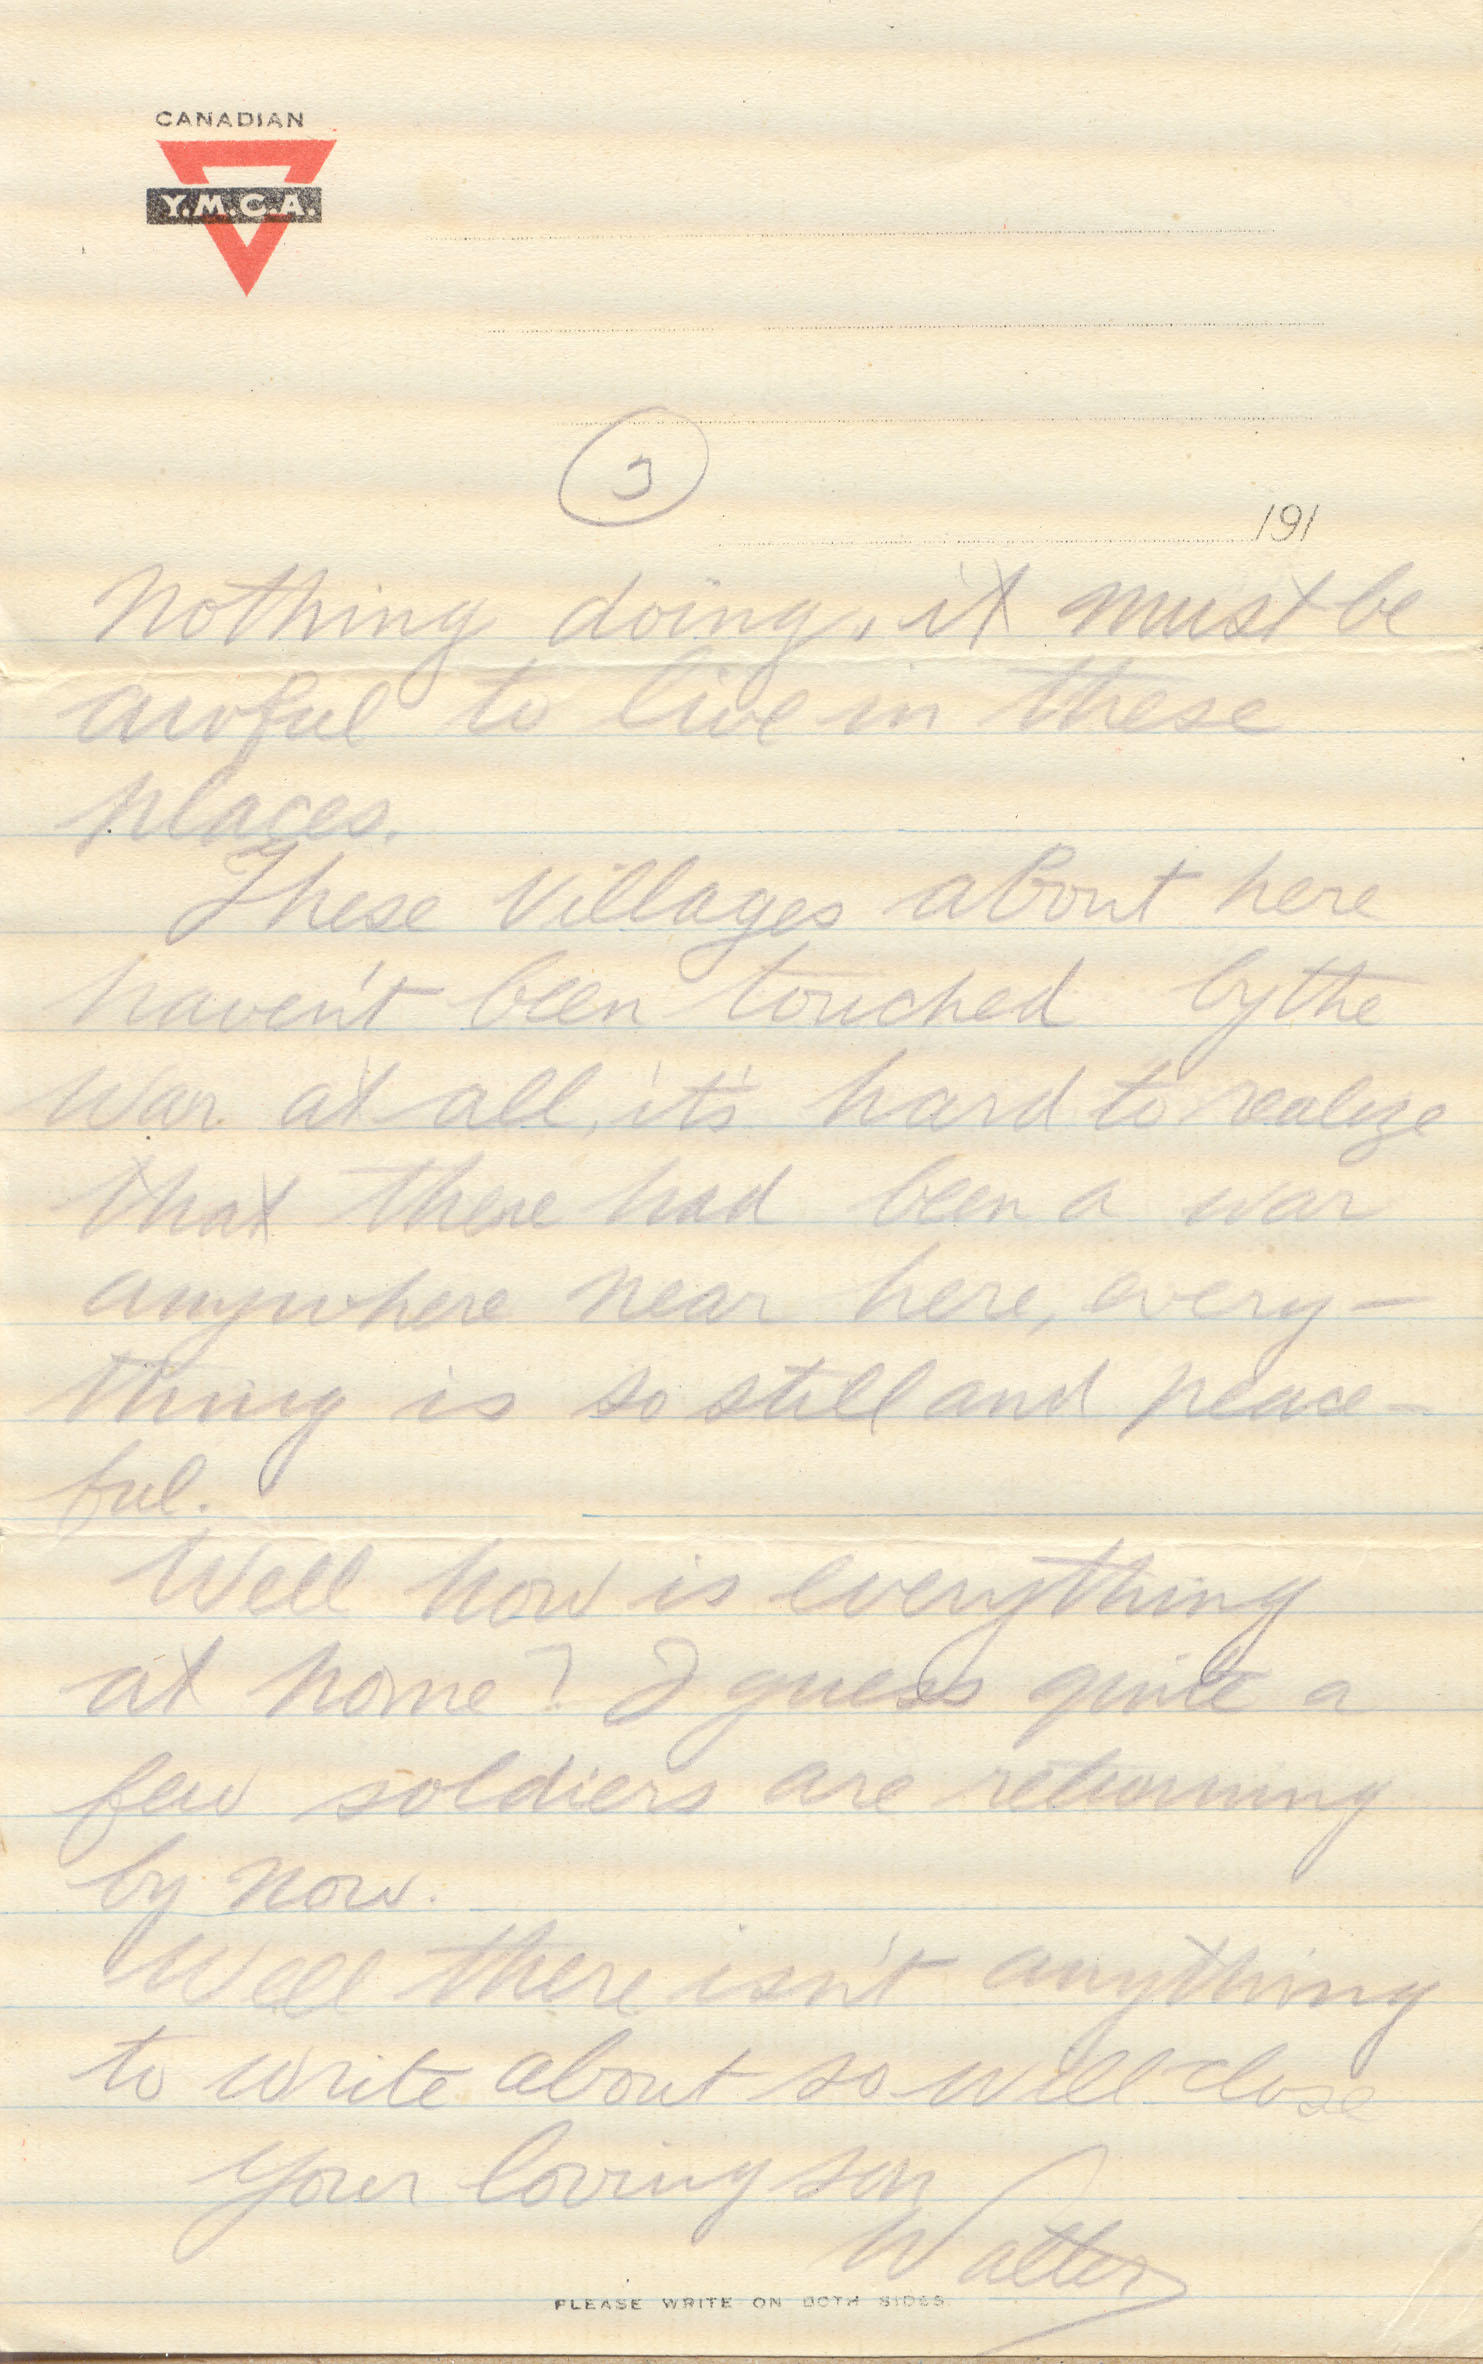 CANADIAN
Y.M.C.A.
3
191
Nothing doing, it must be
awful to live in these
places.
These villages about here
haven't been touched by the
war at all, it's hard to realize
that there had been a war
anywhere near here, every-
thing is so still and peace-
ful.
Well how is everything
at home? I guess quite a
few soldiers are returning
by now.
Well there isn't anything
to write about so will close
Your loving son
Walter
PLEASE WRITE ON BOTH SIDES